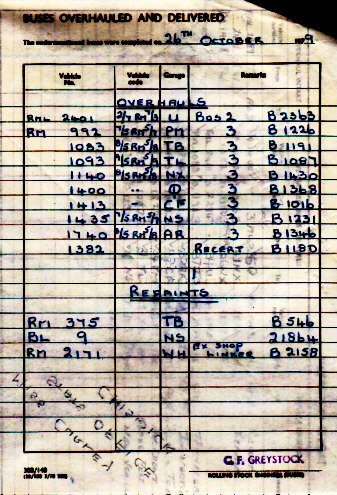 BUSES OVERHAULED AND DELIVERED
The undermentioned buses were completed on 26TH OCTOBER 1979
Vehicle No. Vehicle code Garage Remarks
OVERHAULS
RML 2401 U Box 2 B 2363
RM 992 PM 3 B 1226
1083 8/5 RM 5/8 TB 3 B 1191
1093 TL 3 B 1087
1140 8/5 RM 5/8 NX 3 B 1430
1400 " 3 B 1368
1413 " CF 3 B 1016
1435 NS 3 B 1231
1740 AR 3 B 1346
1382 RECERT B 1180
REPAINTS
RM 375 TB B 546
BL 9 NS 21864
RM 2171 WH EX SHOP LINKER B 2158
CHISWICK
C.F. GREYSTOCK
ROLLING STOCK ENGINEER (BUSES)